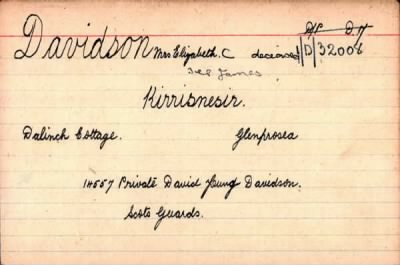 D/P D.N
Davidson Mrs Elizabeth. C deceased D/32008
See James
Kirrisnesir.
Dalinch Cottage. Glenprosea
14557 Private David Davidson.
Scots Guards.